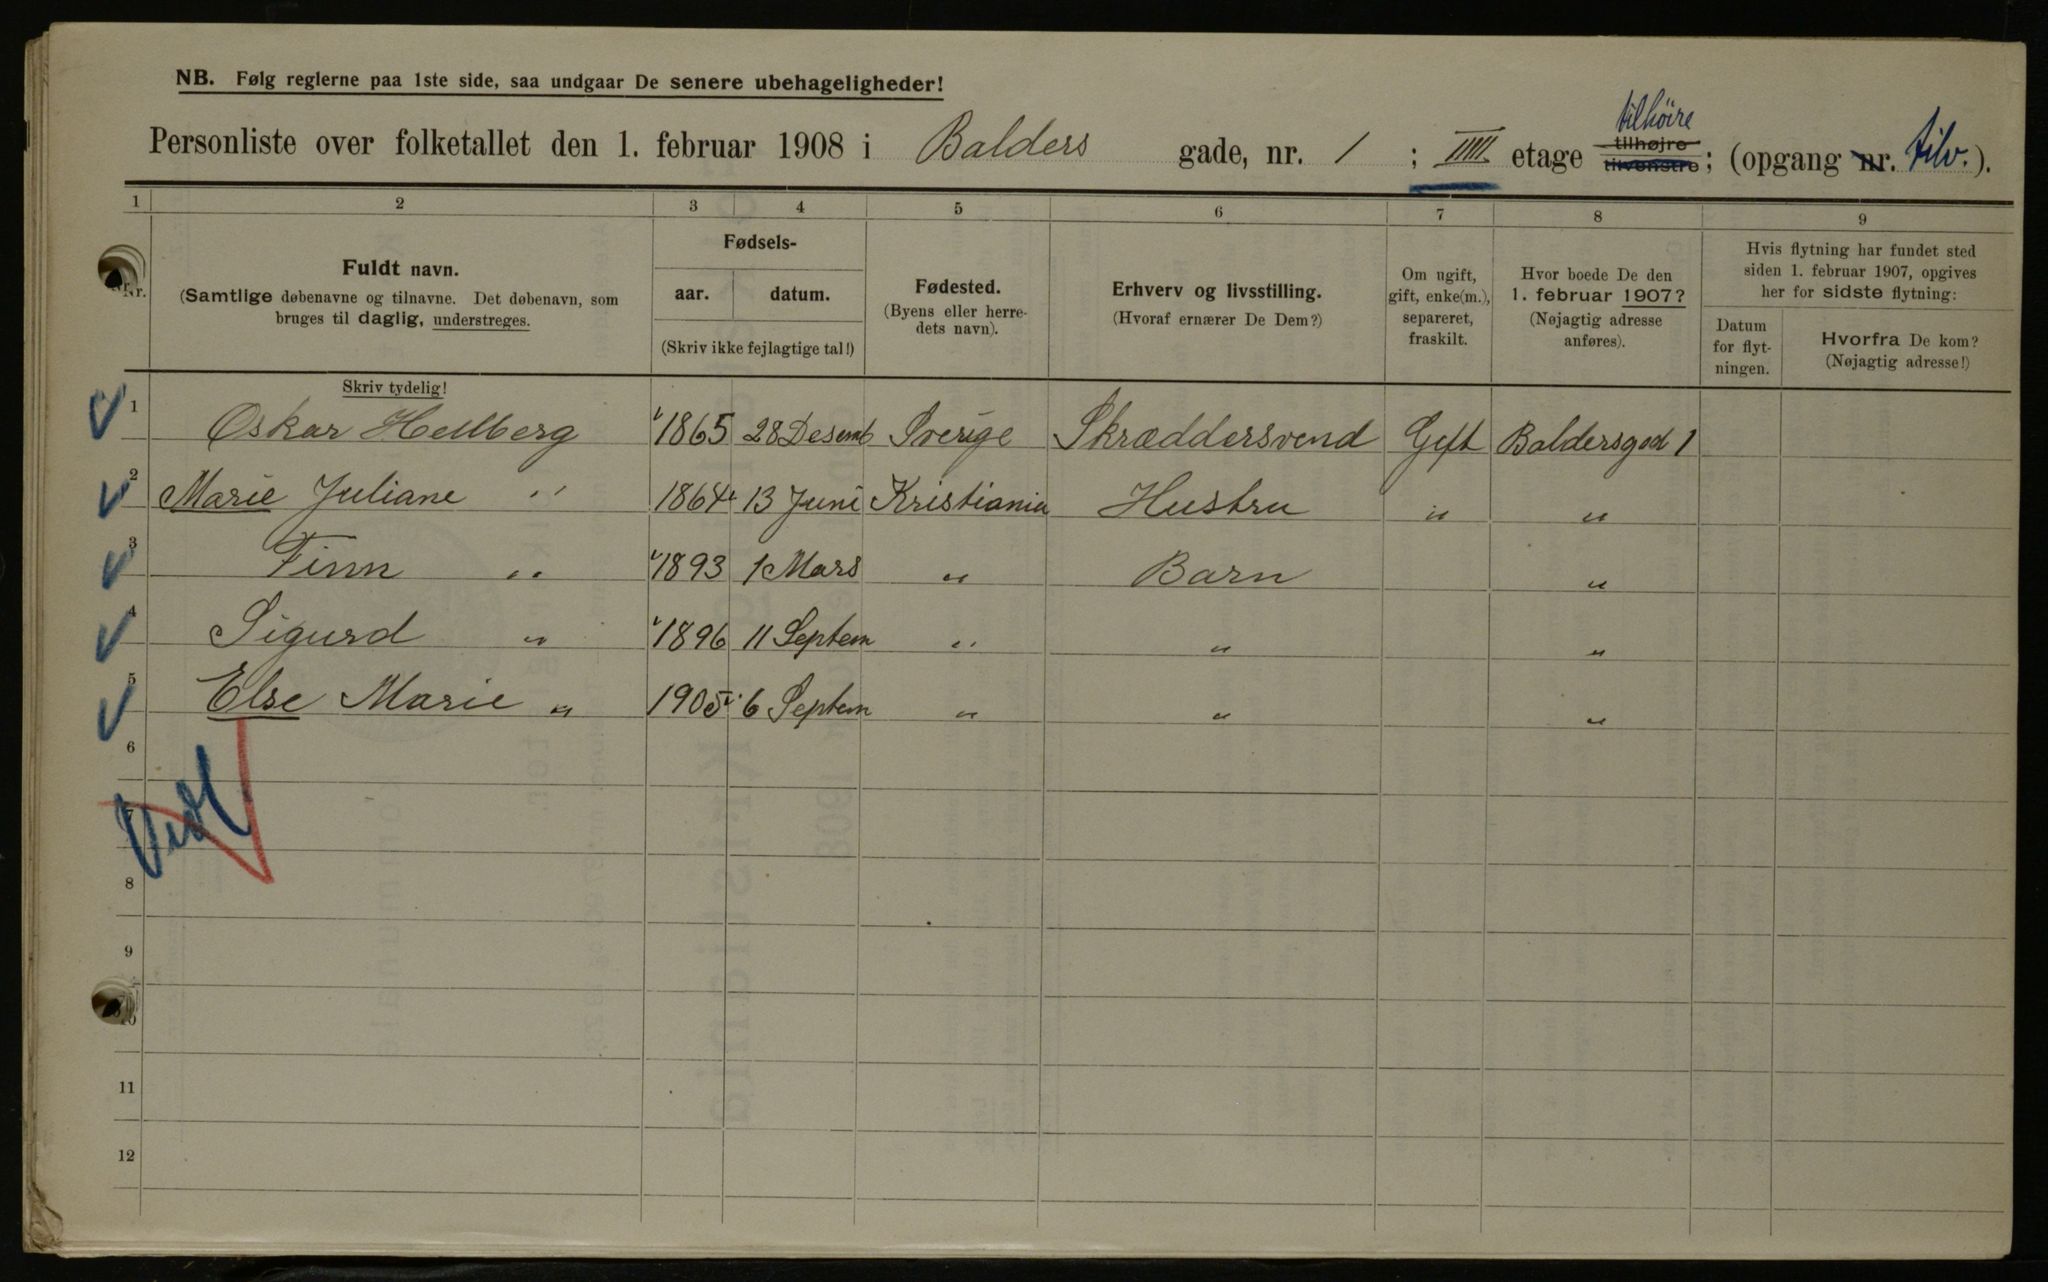 NB. Følg reglerne paa 1ste side, saa undgaar De senere ubehageligheder!
Personliste over folketallet den 1. februar 1908 i Balders gade, nr. 1 ; IIII. etage tilhøire tilhøjre tilvenstre; (opgang nr. tilv.).
1 2 3 4 5 6 7 8 9
Nr.
Fuldt navn.
(Samtlige døbenavne og tilnavne. Det døbenavn, som
bruges til daglig, understreges.
Skriv tydelig!
Fødsels-
aar. datum.
(Skriv ikke fejlagtige tal!)
Fødested.
(Byens eller herre-
dets navn).
Erhverv og livsstilling.
(Hvoraf ernærer De Dem?)
Om ugift,
gift, enke(m.),
separeret,
fraskilt.
Hvor boede De den
1. februar 1907?
(Nøjagtig adresse
anføres).
Hvis flytning har fundet sted
siden 1. februar 1907, opgives
her for sidste flytning:
Datum
for flyt-
ningen.
Hvorfra De kom?
(Nøjagtig adresse!)
1 Oskar Hellberg 1865 28 Desemb Sverige Skræddersvend Gift Baldersgad 1
2 Marie Juliane " 1864 13 Juni Kristiania Hustru " "
3 Finn " 1893 1 Mars " Barn "
4 Sigurd " 1896 11 Septem " " "
5 Else Marie " 1905 6 Septem " " "
6
7
8
9
10
11
12